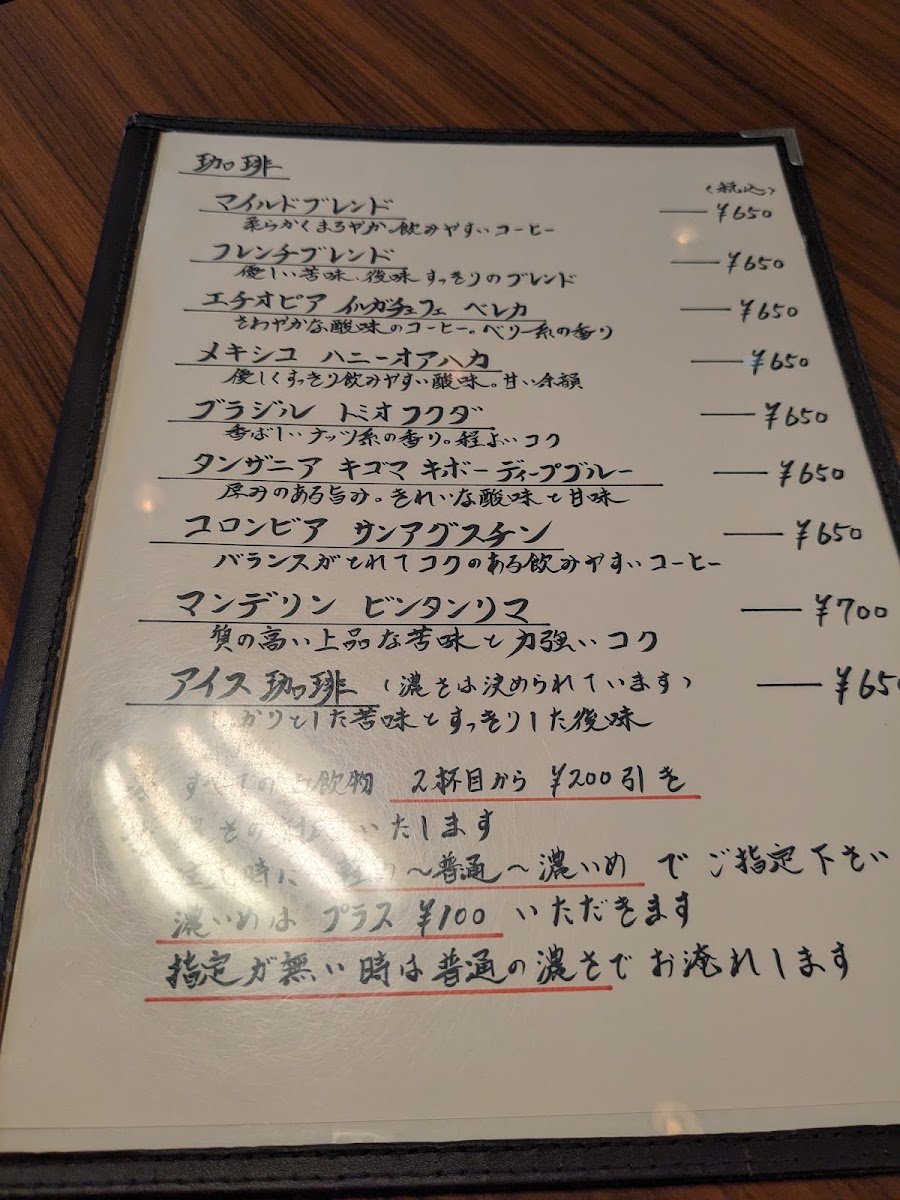 珈琲
(税込)
マイルドブレンド ―― ¥650
柔らかくまろやか。飲みやすいコーヒー
フレンチブレンド ―― ¥650
優しい苦味、後味すっきりのブレンド
エチオピア イルガチェフェ ベレカ ―― ¥650
さわやかな酸味のコーヒー。ベリー系の香り
メキシコ ハニーオアハカ ―― ¥650
優しくすっきり飲みやすい酸味。甘い余韻
ブラジル トミオフクダ ―― ¥650
香ばしいナッツ系の香り。程よいコク
タンザニア キゴマ キボー ディープブルー ―― ¥650
厚みのある旨み。きれいな酸味と甘味
コロンビア サンアグスチン ―― ¥650
バランスがとれてコクのある飲みやすいコーヒー
マンデリン ビンタンリマ ―― ¥700
質の高い上品な苦味と力強いコク
アイス珈琲 (濃さは決められています) ―― ¥650
かりとした苦味とすっきりした後味
すべてのお飲物 2杯目から ¥200引き
いたします
時に ～普通～濃いめ でご指定下さい
濃いめは プラス ¥100 いただきます
指定が無い時は普通の濃さでお淹れします